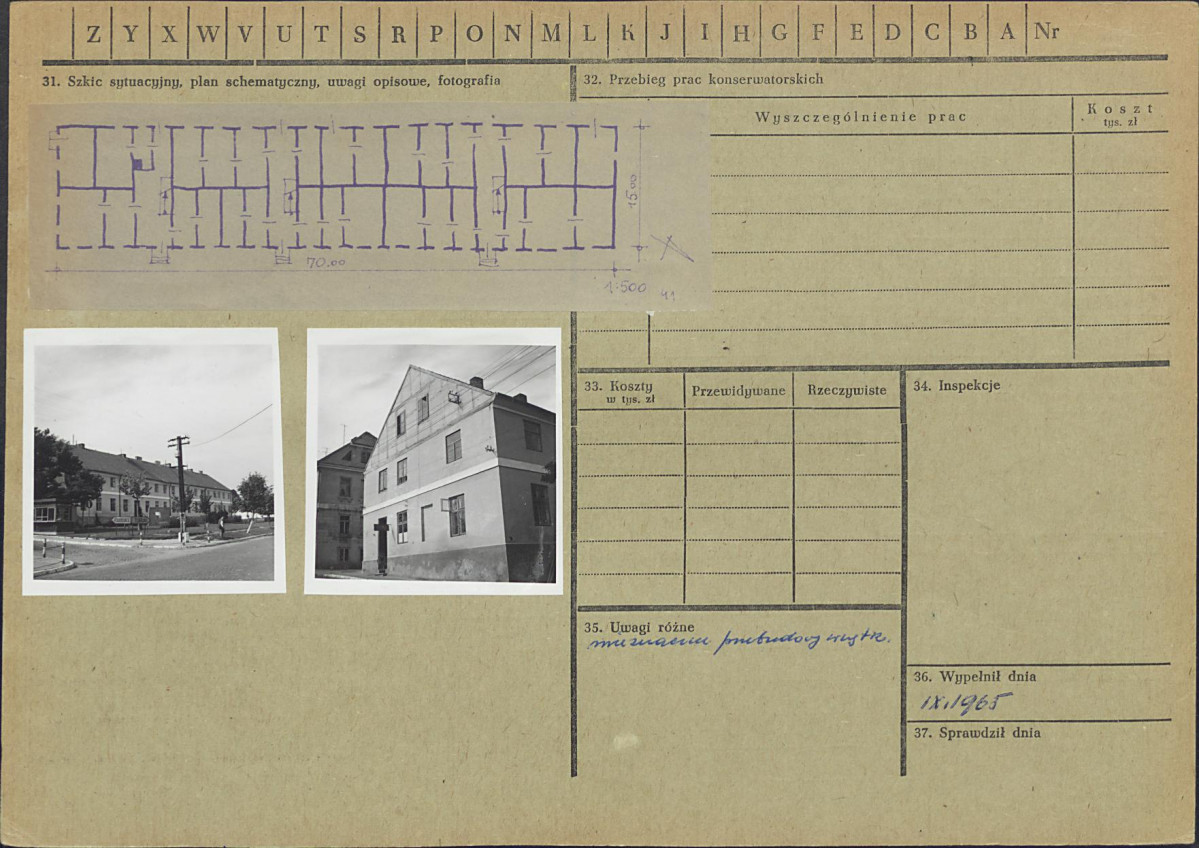 Z Y X W V U T S R P O N M L K J I H G F E D C B A Nr
31. Szkic sytuacyjny, plan schematyczny, uwagi opisowe, fotografia
15.00
70.00
1:500
32. Przebieg prac konserwatorskich
Wyszczególnienie prac
Koszt
tys. zł
33. Koszty
w tys. zł
Przewidywane
Rzeczywiste
34. Inspekcje
35. Uwagi różne
przebudowy
36. Wypełnił dnia
IX.1965
37. Sprawdził dnia